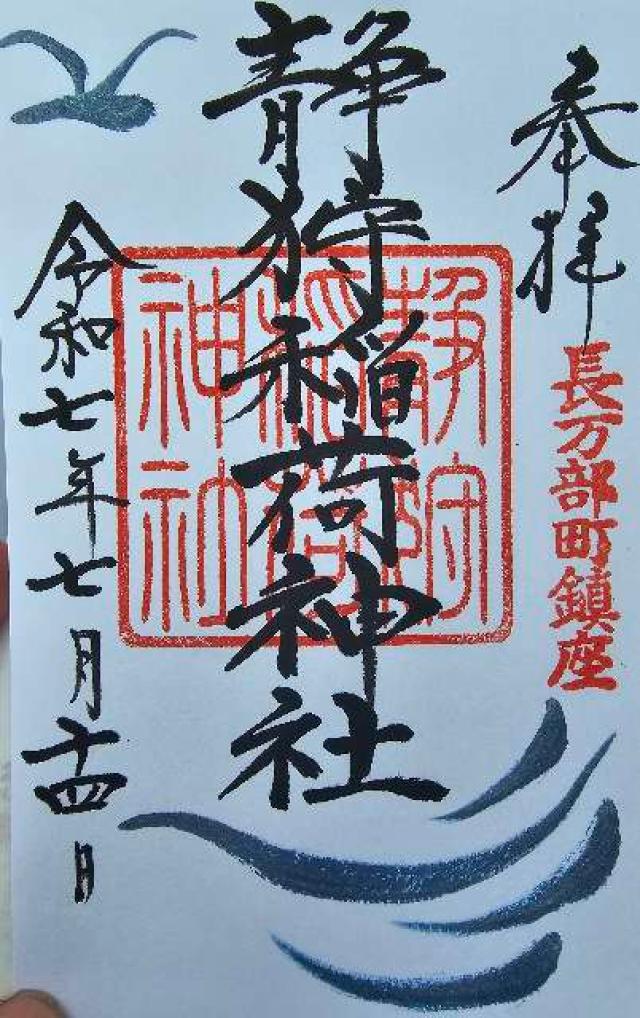 奉拝
長万部町鎮座
静狩稲荷神社
静狩
稲荷
神社
令和七年七月十四日